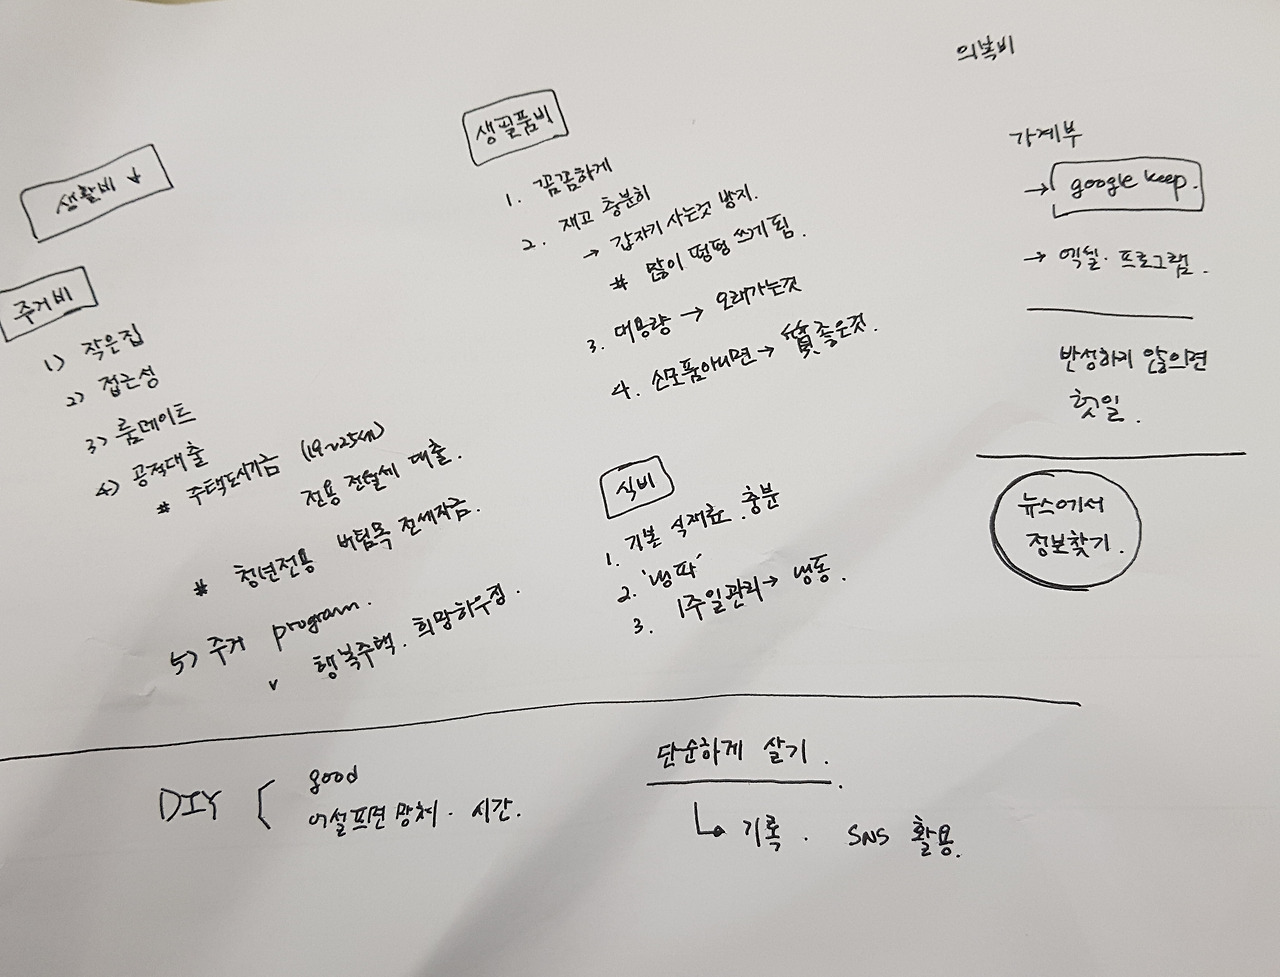 생활비 ↓
주거비
1) 작은집
2) 접근성
3) 룸메이트
4) 공적대출
# 주택도시기금 (19~25세)
전용 전월세 대출.
# 청년전용 버팀목 전세자금.
5) 주거 program.
v 행복주택. 희망하우징.
생필품비
1. 꼼꼼하게
2. 재고 충분히
→ 갑자기 사는것 방지.
# 많이 펑펑 쓰게됨.
3. 대용량 → 오래가는것
4. 소모품아니면 → 質좋은것.
식비
1. 기본 식재료 충분
2. '냉파'
3. 1주일관리 → 냉동.
의복비
가계부
→ google keep.
→ 엑셀. 프로그램.
반성하지 않으면
헛일.
뉴스에서
정보찾기.
DIY { good
어설프면 망쳐. 시간.
단순하게 살기.
↳ 기록. SNS 활용.